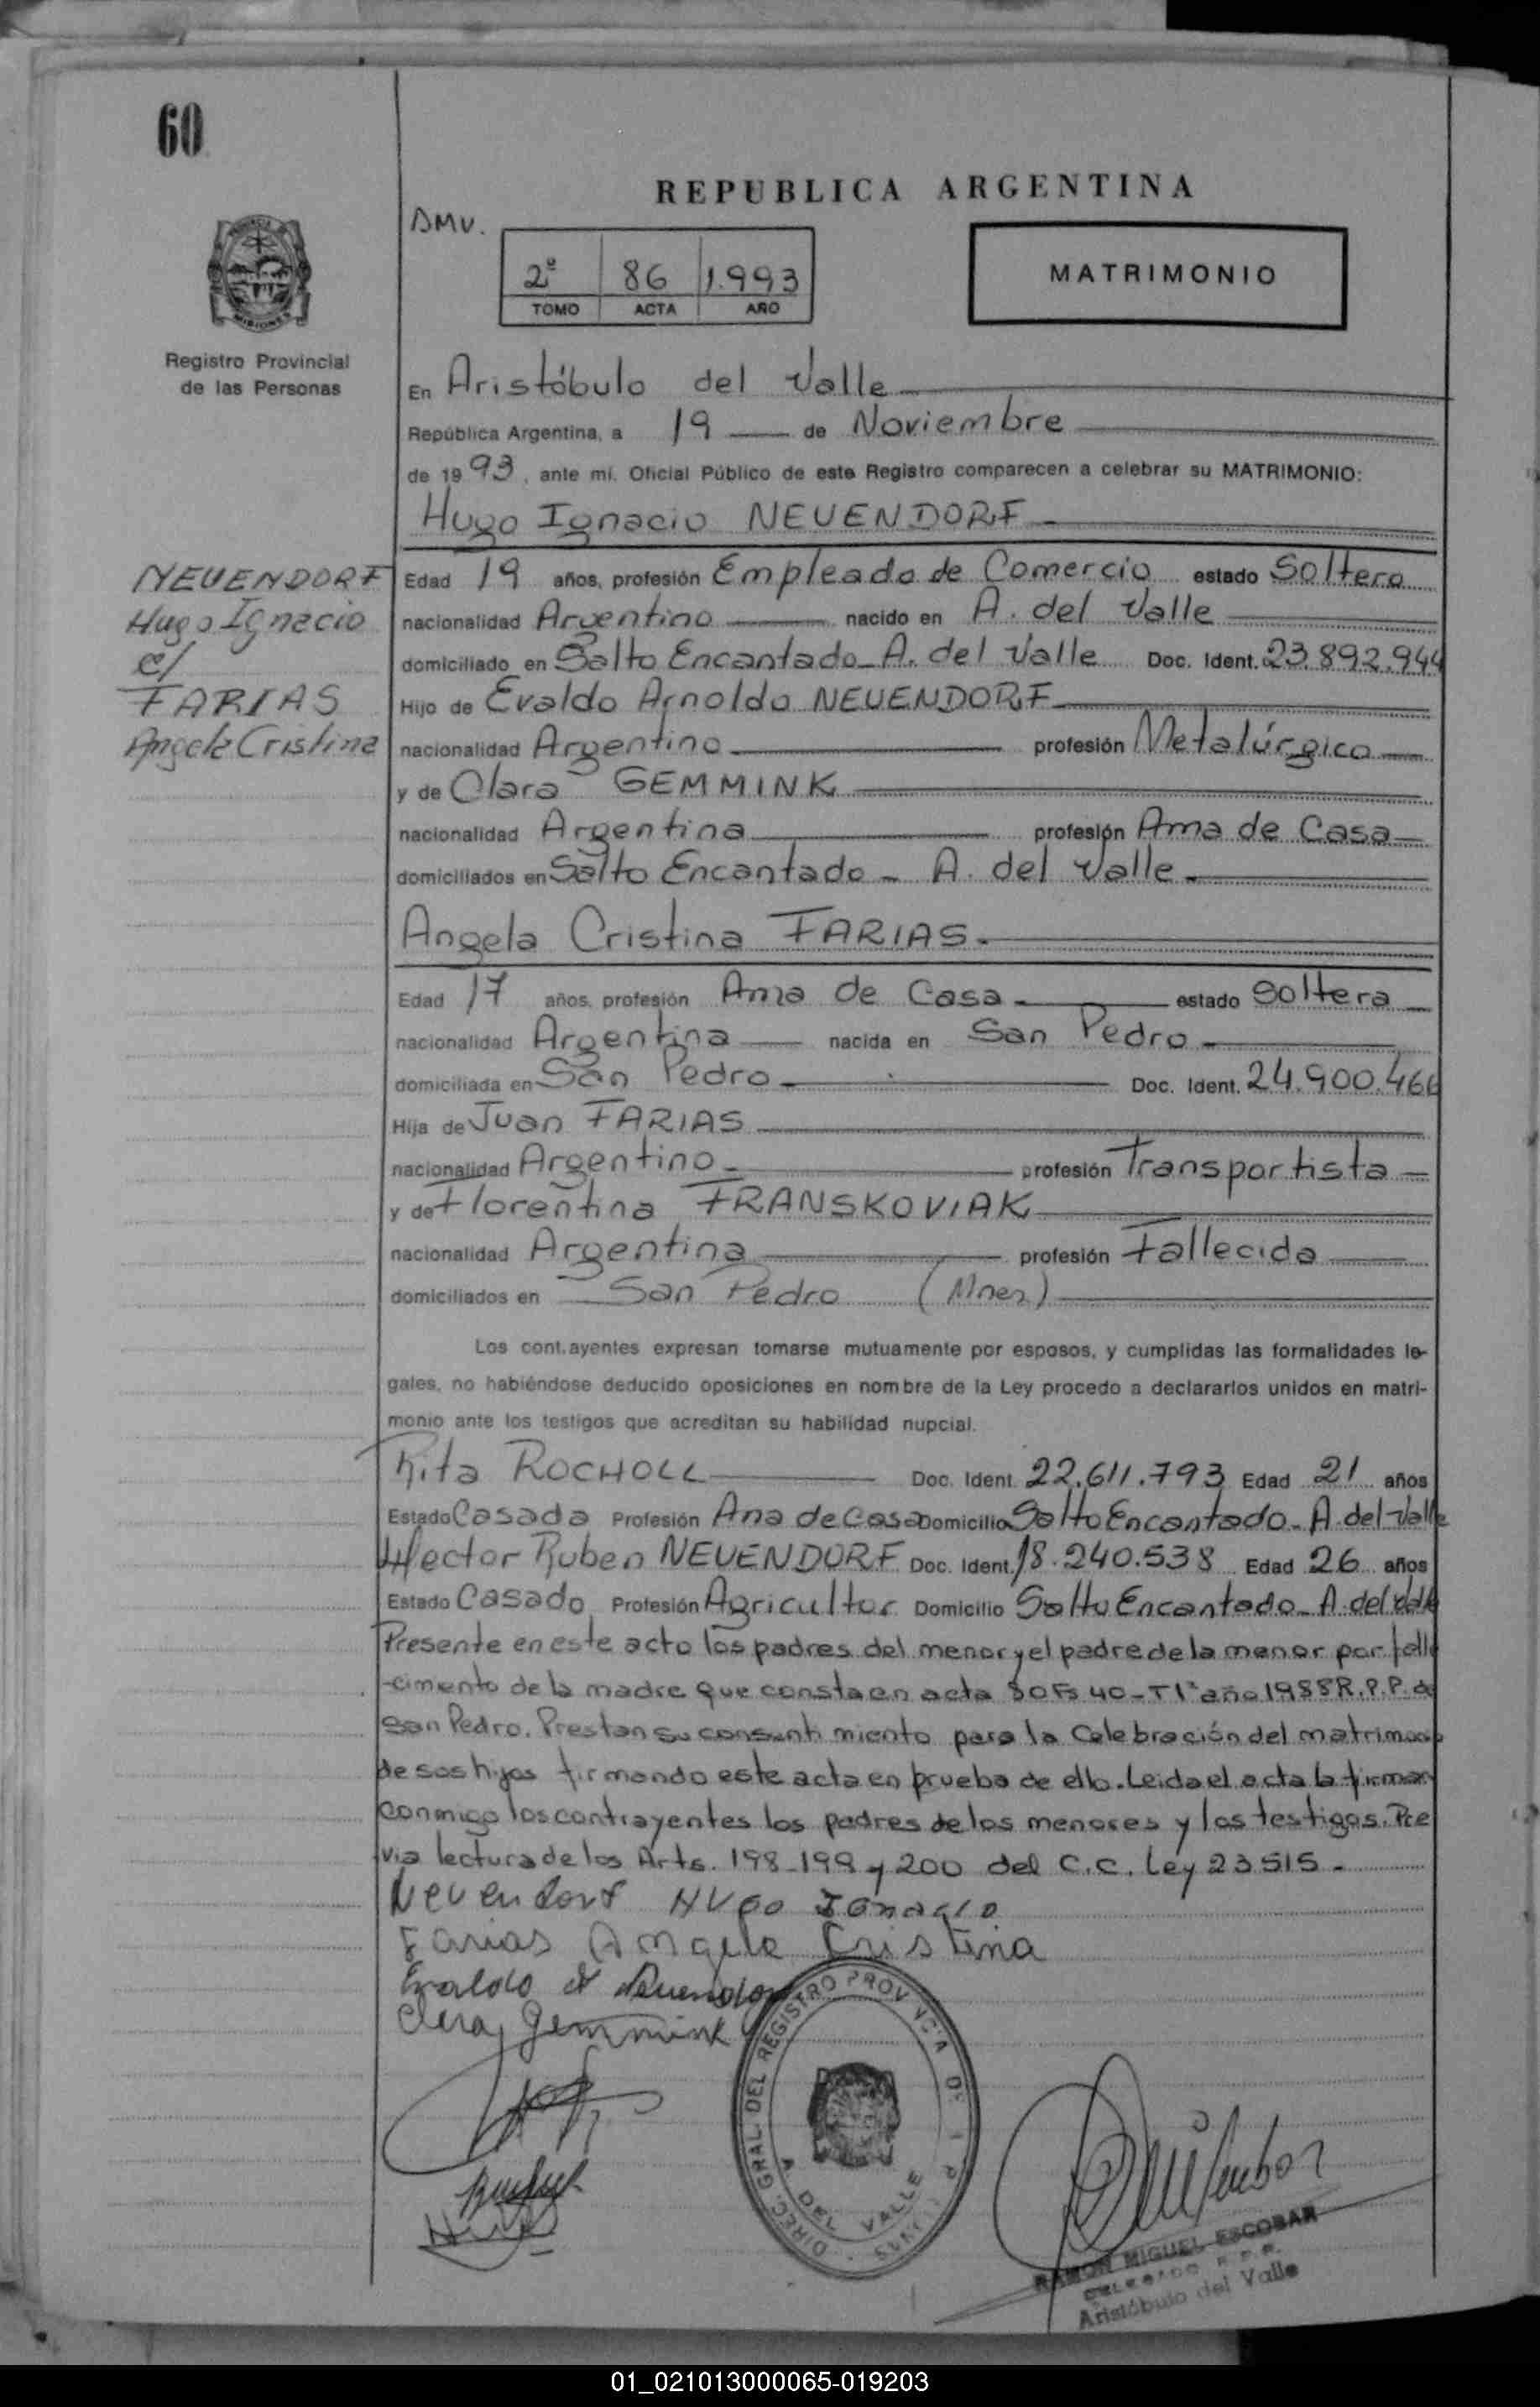 60
REPUBLICA ARGENTINA
DMV.
2º 86 1.993
TOMO ACTA AÑO
MATRIMONIO
MISIONES
Registro Provincial
de las Personas
En Aristóbulo del Valle
República Argentina, a 19 de Noviembre
de 1993, ante mí, Oficial Público de este Registro comparecen a celebrar su MATRIMONIO:
Hugo Ignacio NEUENDORF
NEUENDORF
Hugo Ignacio
c/
FARIAS
Angela Cristina
Edad 19 años, profesión Empleado de Comercio estado Soltero
nacionalidad Argentino nacido en A. del Valle
domiciliado en Salto Encantado - A. del Valle Doc. Ident. 23.892.944
Hijo de Evaldo Arnoldo NEUENDORF
nacionalidad Argentino profesión Metalúrgico
y de Clara GEMMINK
nacionalidad Argentina profesión Ama de Casa
domiciliados en Salto Encantado - A. del Valle
Angela Cristina FARIAS
Edad 17 años, profesión Ama de Casa estado Soltera
nacionalidad Argentina nacida en San Pedro
domiciliada en San Pedro Doc. Ident. 24.900.466
Hija de Juan FARIAS
nacionalidad Argentino profesión Transportista
y de Florentina FRANSKOVIAK
nacionalidad Argentina profesión Fallecida
domiciliados en San Pedro (Mnes)
Los cont.ayentes expresan tomarse mutuamente por esposos, y cumplidas las formalidades le-
gales, no habiéndose deducido oposiciones en nombre de la Ley procedo a declararlos unidos en matri-
monio ante los testigos que acreditan su habilidad nupcial.
Rita ROCHOLL Doc. Ident. 22.611.793 Edad 21 años
Estado Casada Profesión Ama de Casa Domicilio Salto Encantado - A. del Valle
Hector Ruben NEUENDORF Doc. Ident. 18.240.538 Edad 26 años
Estado Casado Profesión Agricultor Domicilio Salto Encantado - A. del Valle
Presente en este acto los padres del menor y el padre de la menor por falle
-cimento de la madre que consta en acta 80 Fs 40 - T 1º año 1988 R.P.P. de
San Pedro. Prestan su consentimiento para la Celebración del matrimonio
de sos hijos firmando este acta en prueba de ello. Leida el acta la firman
conmigo los contrayentes los padres de los menores y los testigos. Pre
via lectura de los Arts. 198-199 y 200 del C.C. Ley 23515.-
Neuendorf Hugo Ignacio
Farias Angela Cristina
Evaldo A Neuendorf
Clara Gemmink
DIREC. GRAL. DEL REGISTRO PROVINCIAL DE
A. DEL VALLE
RAMON MIGUEL ESCOBAR
DELEGADO R.P.P.
Aristóbulo del Valle
01_021013000065-019203